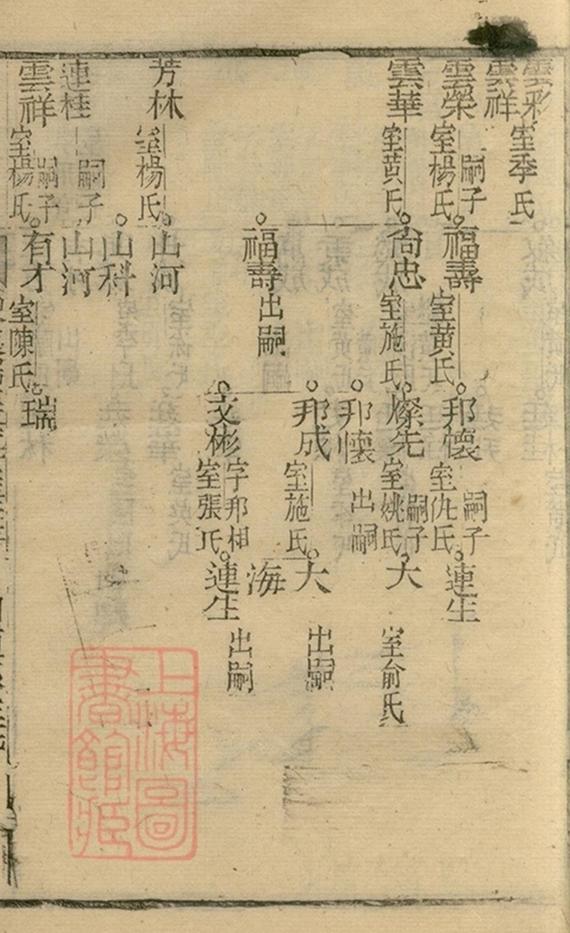 雲彩 室季氏
雲祥
雲榮 室楊氏 嗣子 福壽 室黃氏 邦懷 室仇氏 嗣子 連生
雲華 室黃氏 尙忠 室施氏 燦先 室姚氏 嗣子 大 室俞氏
邦懷 出嗣
邦成 室施氏 大 出嗣
福壽 出嗣
海
文彬 字邦相 室張氏 連生 出嗣
芳林 室楊氏 山河
山科
連桂 嗣子 山河
雲祥 室楊氏 嗣子 有才 室陳氏 瑞
上海圖
書館藏